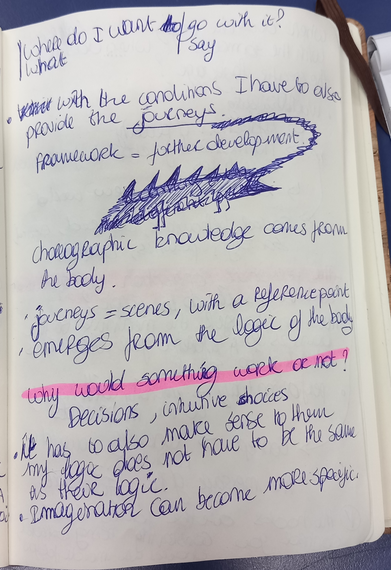 Where do I want to go with it?
What say
• with the conditions I have to also
provide the journeys.
Framework = further development.
choreographic knowledge comes from
the body.
• journeys = scenes, with a reference point
• emerges from the logic of the body
Why would something work or not?
Decisions, intuitive choices
• it has to also make sense to them
my logic does not have to be the same
as their logic.
• Imagination can become more specific.